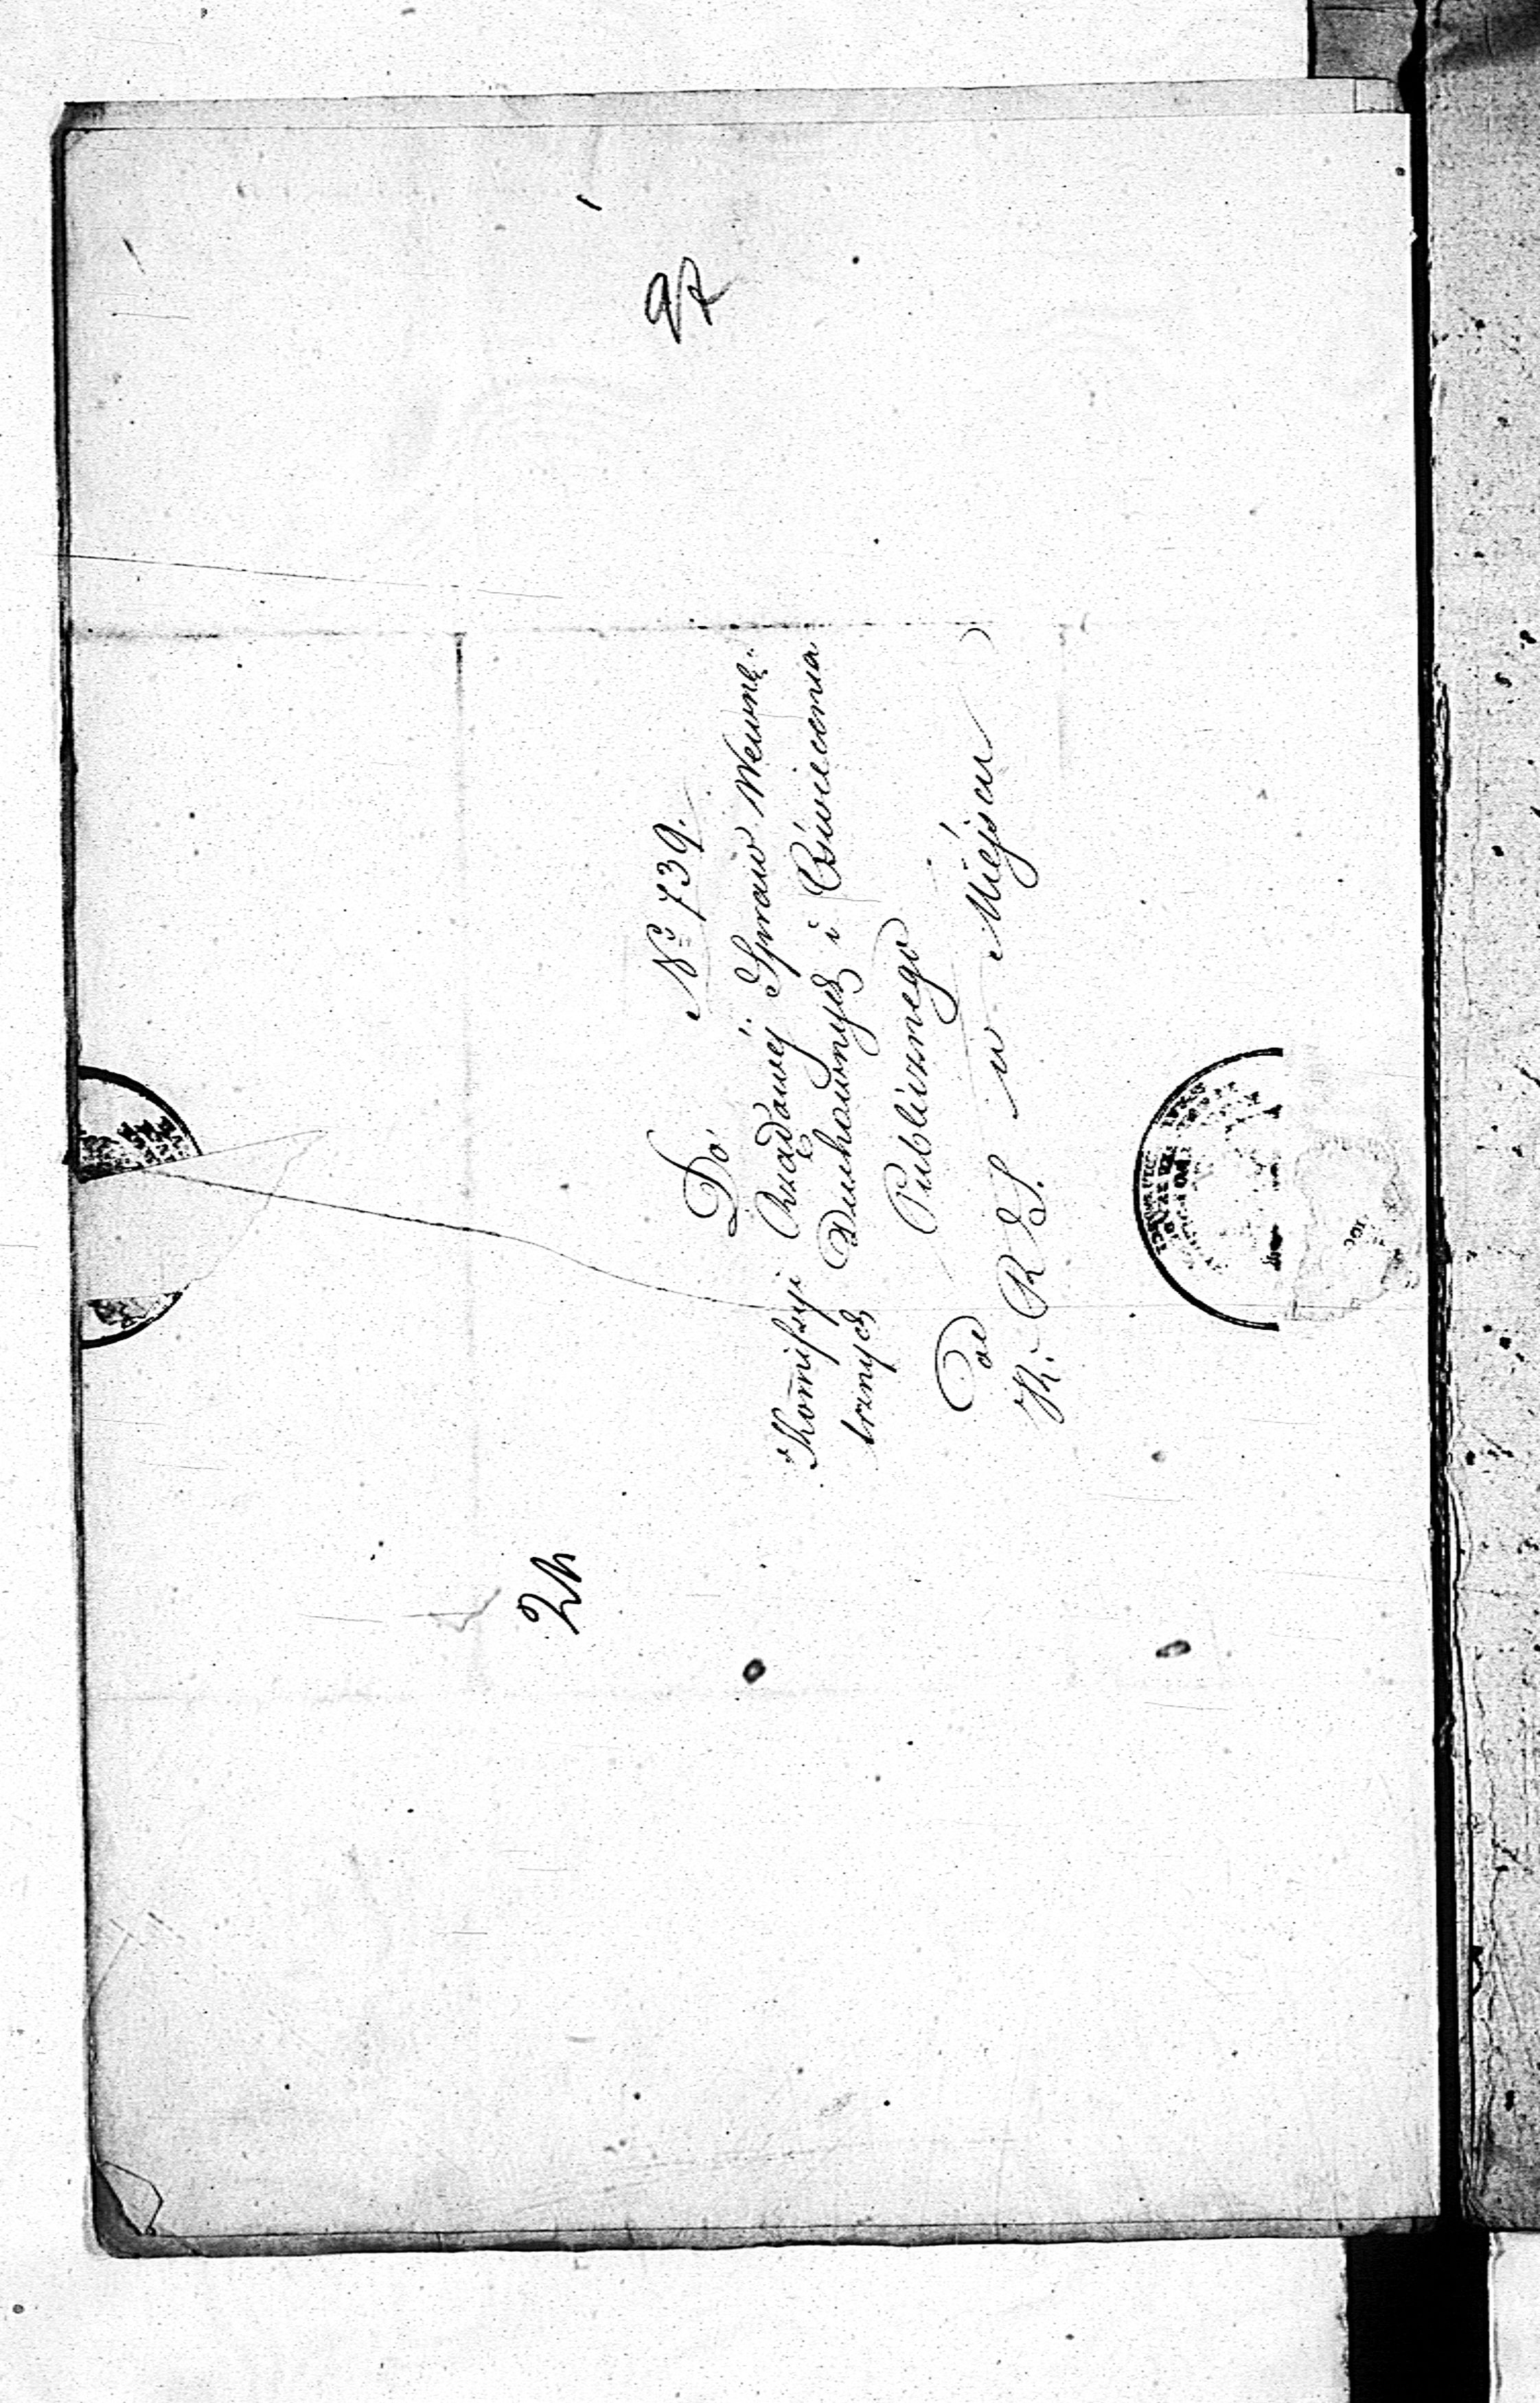 97
24
№ 739.
Do
Kommissyi Rządowéj Spraw Wewnę=
trznych Duchownych i Oświecenia
Publicznego
Od
K. R. S. w Miéjscu